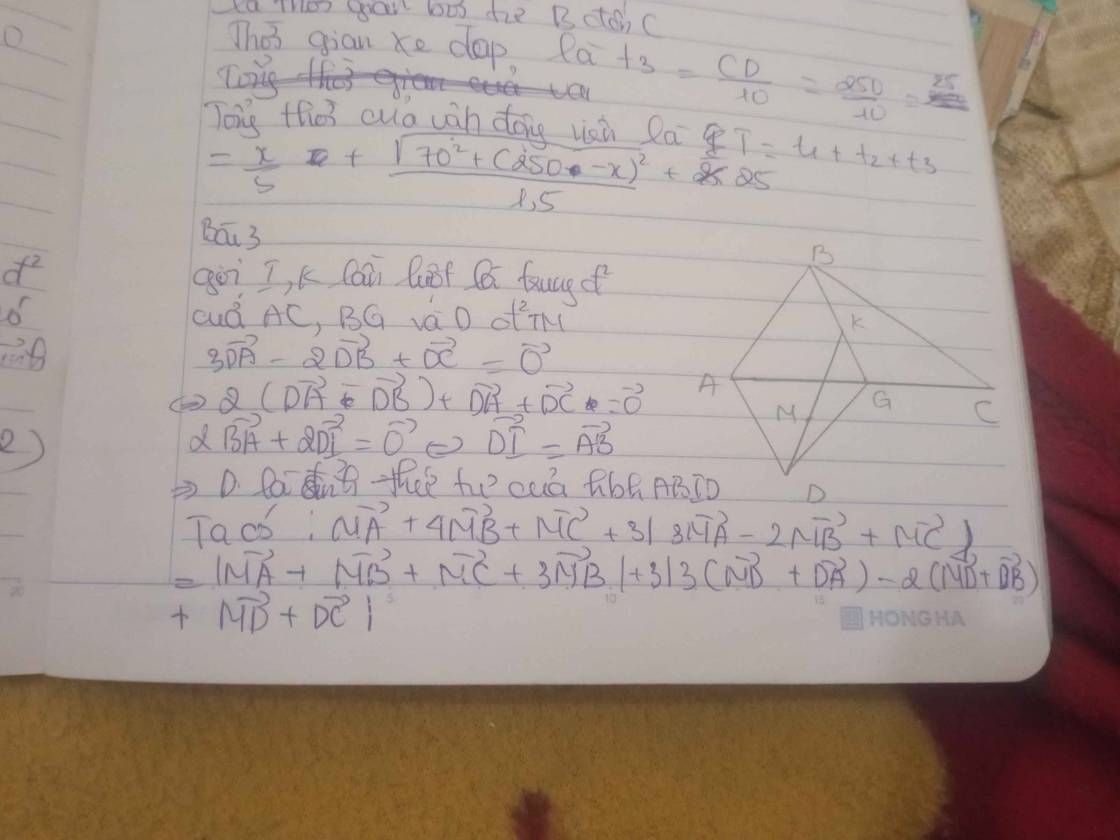 là thời gian bơi từ B đến C
Thời gian xe đạp là t3 = CD/10 = 250/10 = 25
Tổng thời gian của va
Tổng thời của vận động viên là T = t1 + t2 + t3
= x/5 + √(70² + (250 - x)²)/1,5 + 25
Bài 3
gọi I, K lần lượt là trung đ²
của AC, BG và D đ² TM
3DA→ - 2DB→ + DC→ = 0→
⇔ 2 (DA→ - DB→) + DA→ + DC→ = 0→
2BA→ + 2DI→ = 0→ ⇔ DI→ = AB→
⇒ D là đỉnh thứ tư của hbh ABID
Ta có : MA→ + 4MB→ + MC→ + 3| 3MA→ - 2MB→ + MC→ |
= |MA→ + MB→ + MC→ + 3MB→ | + 3| 3 (MD→ + DA→) - 2 (MD→ + DB→)
+ MD→ + DC→ |
B
K
A
G
C
M
D
đ²
2)
20
5
10
15
20
HONG HA